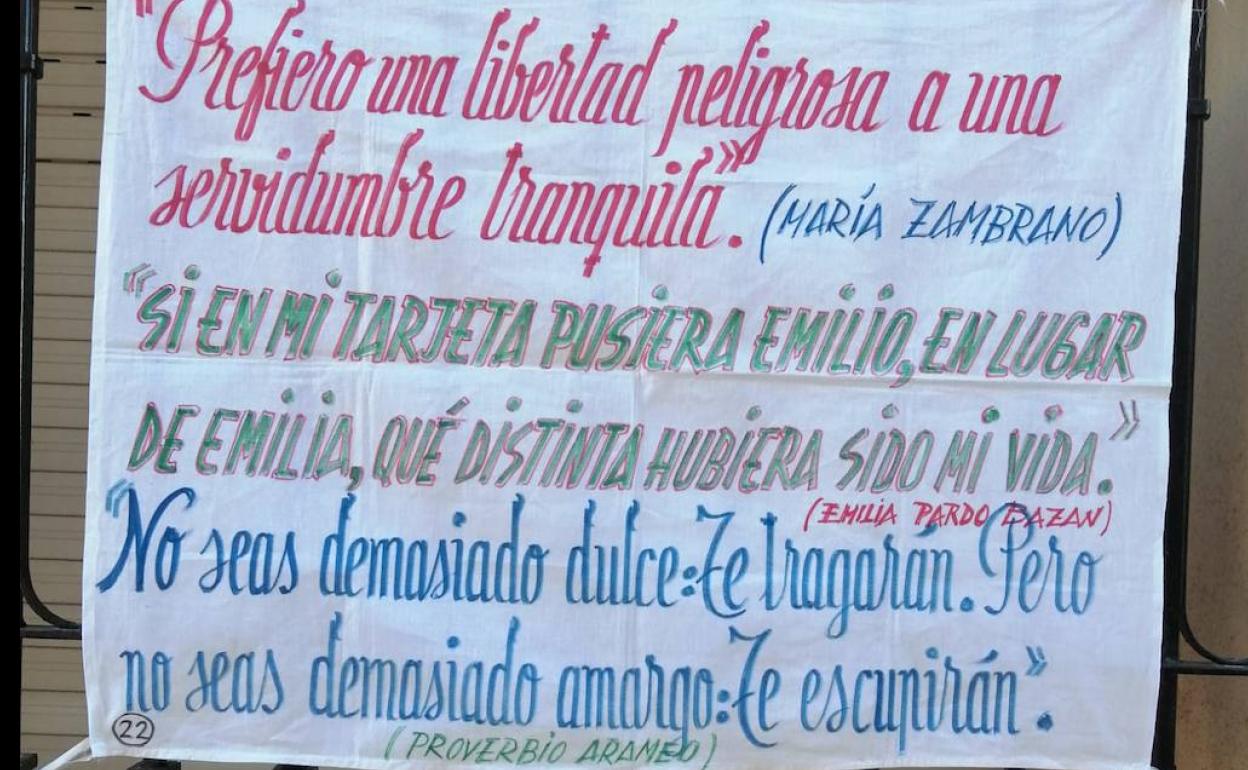 "Prefiero una libertad peligrosa a una
servidumbre tranquila». (MARÍA ZAMBRANO)
«SI EN MI TARJETA PUSIERA EMILIO, EN LUGAR
DE EMILIA, QUÉ DISTINTA HUBIERA SIDO MI VIDA.»
(EMILIA PARDO BAZAN)
"No seas demasiado dulce: Te tragarán. Pero
no seas demasiado amargo: Te escupirán».
22
(PROVERBIO ARAMEO)